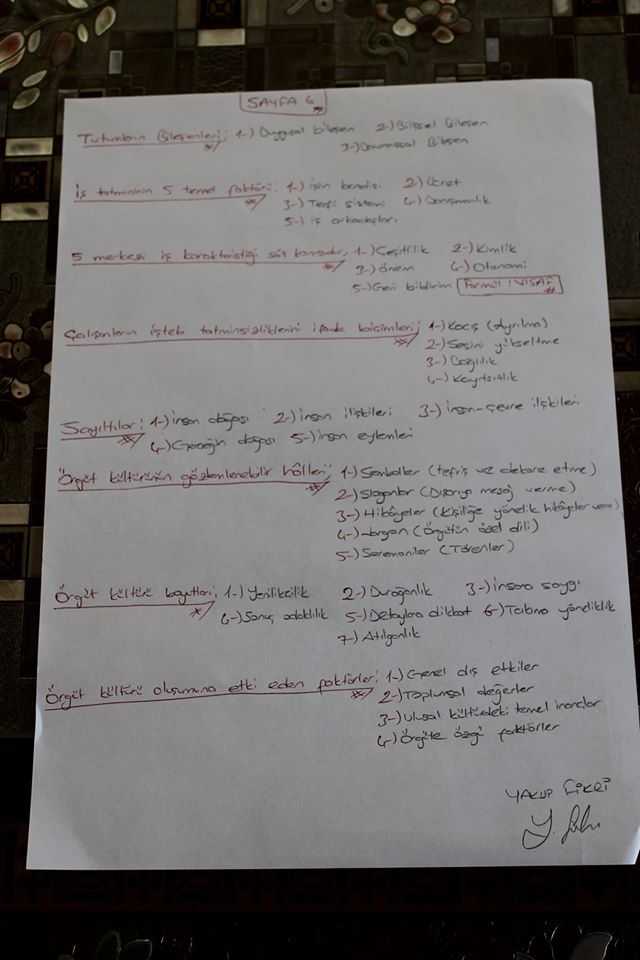 SAYFA 6
Tutumların Bileşenleri; 1-) Duygusal bileşen 2-) Bilişsel Bileşen
3-) Davranışsal Bileşen
İş tatmininin 5 temel faktörü; 1-) işin kendisi 2-) Ücret
3-) Terfi sistemi 4-) Danışmanlık
5-) iş arkadaşları
5 merkezi iş karakteristiği söz konusudur; 1-) Çeşitlilik 2-) Kimlik
3-) önem 4-) Otonomi
5-) Geri bildirim Formül!
Çalışanların işteki tatminsizliklerini ifade biçimleri; 1-) Kaçış (Ayrılma)
2-) Sesini yükseltme
3-) Bağlılık
4-) Kayıtsızlık
Sayıltılar; 1-) insan doğası 2-) insan ilişkileri 3-) insan-çevre ilişkileri
4-) Gerçeğin doğası 5-) insan eylemleri
Örgüt kültürünün gözlemlenebilir hâlleri; 1-) Semboller (tefriş ve dekore etme)
2-) Sloganlar (Dışarıya mesaj verme)
3-) Hikâyeler (Kişiliğe yönelik hikâyeler verme)
4-) Jargon (Örgütün özel dili)
5-) Seremoniler (Törenler)
Örgüt kültürü boyutları; 1-) Yenilikcilik 2-) Durağanlık 3-) insana saygı
4-) Sonuç odaklılık 5-) Detaylara dikkat 6-) Takıma yöneliklik
7-) Atılganlık
Örgüt kültürü oluşumuna etki eden faktörler; 1-) Genel dış etkiler
2-) Toplumsal değerler
3-) Ulusal kültürdeki temel inançlar
4-) Örgüte özgü faktörler
YAKUP FİKRİ